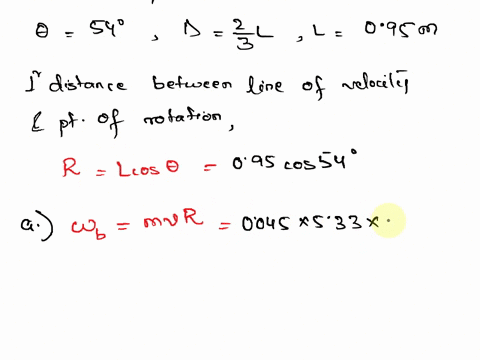 θ = 54° , D = 2/3 L , L = 0.95m
⊥r distance between line of velocity
& pt. of rotation,
R = L cos θ = 0.95 cos 54°
a.) ω_b = mvR = 0.045 × 5.33 ×